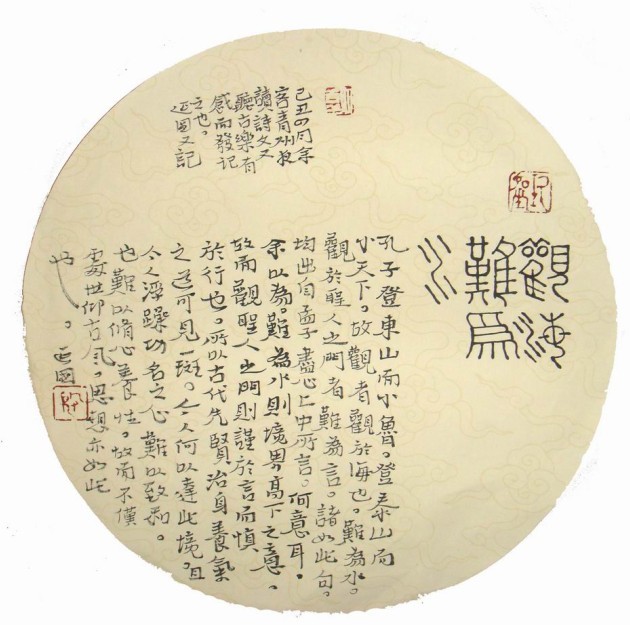 觀海
難為
水
孔子登東山而小魯。登泰山而
小天下。故觀者觀於海也。難為水。
觀於聖人之門者難為言。諸如此句。
均出自孟子盡心上中所言。何意耳。
余以為。難為水則境界高下之意。
故而觀聖人之門則謹於言而慎
於行也。所以古代先賢治身養氣
之道可見一斑。今人何以達此境。且
今人浮躁功名之心難以致和。
也難以脩心養性。故而不僅
處世仰古氣。思想亦如此
也。正國
己丑四月余
客青州夜
讀詩文又
聽古樂有
感而發記
之也。
正國又記